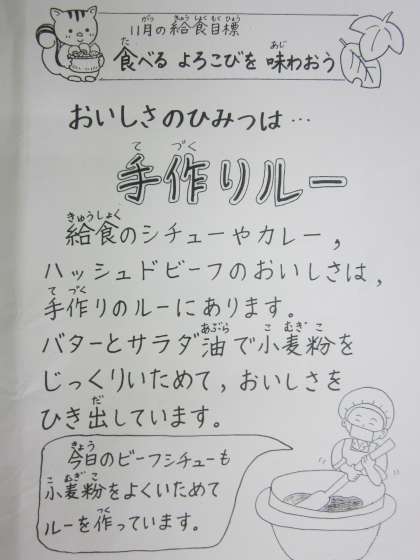 11月の給食目標
食べる よろこびを 味わおう
おいしさのひみつは…
手作りルー
給食のシチューやカレー,
ハッシュドビーフのおいしさは,
手作りのルーにあります。
バターとサラダ油で小麦粉を
じっくりいためて,おいしさを
ひき出しています。
今日のビーフシチューも
小麦粉をよくいためて
ルーを作っています。